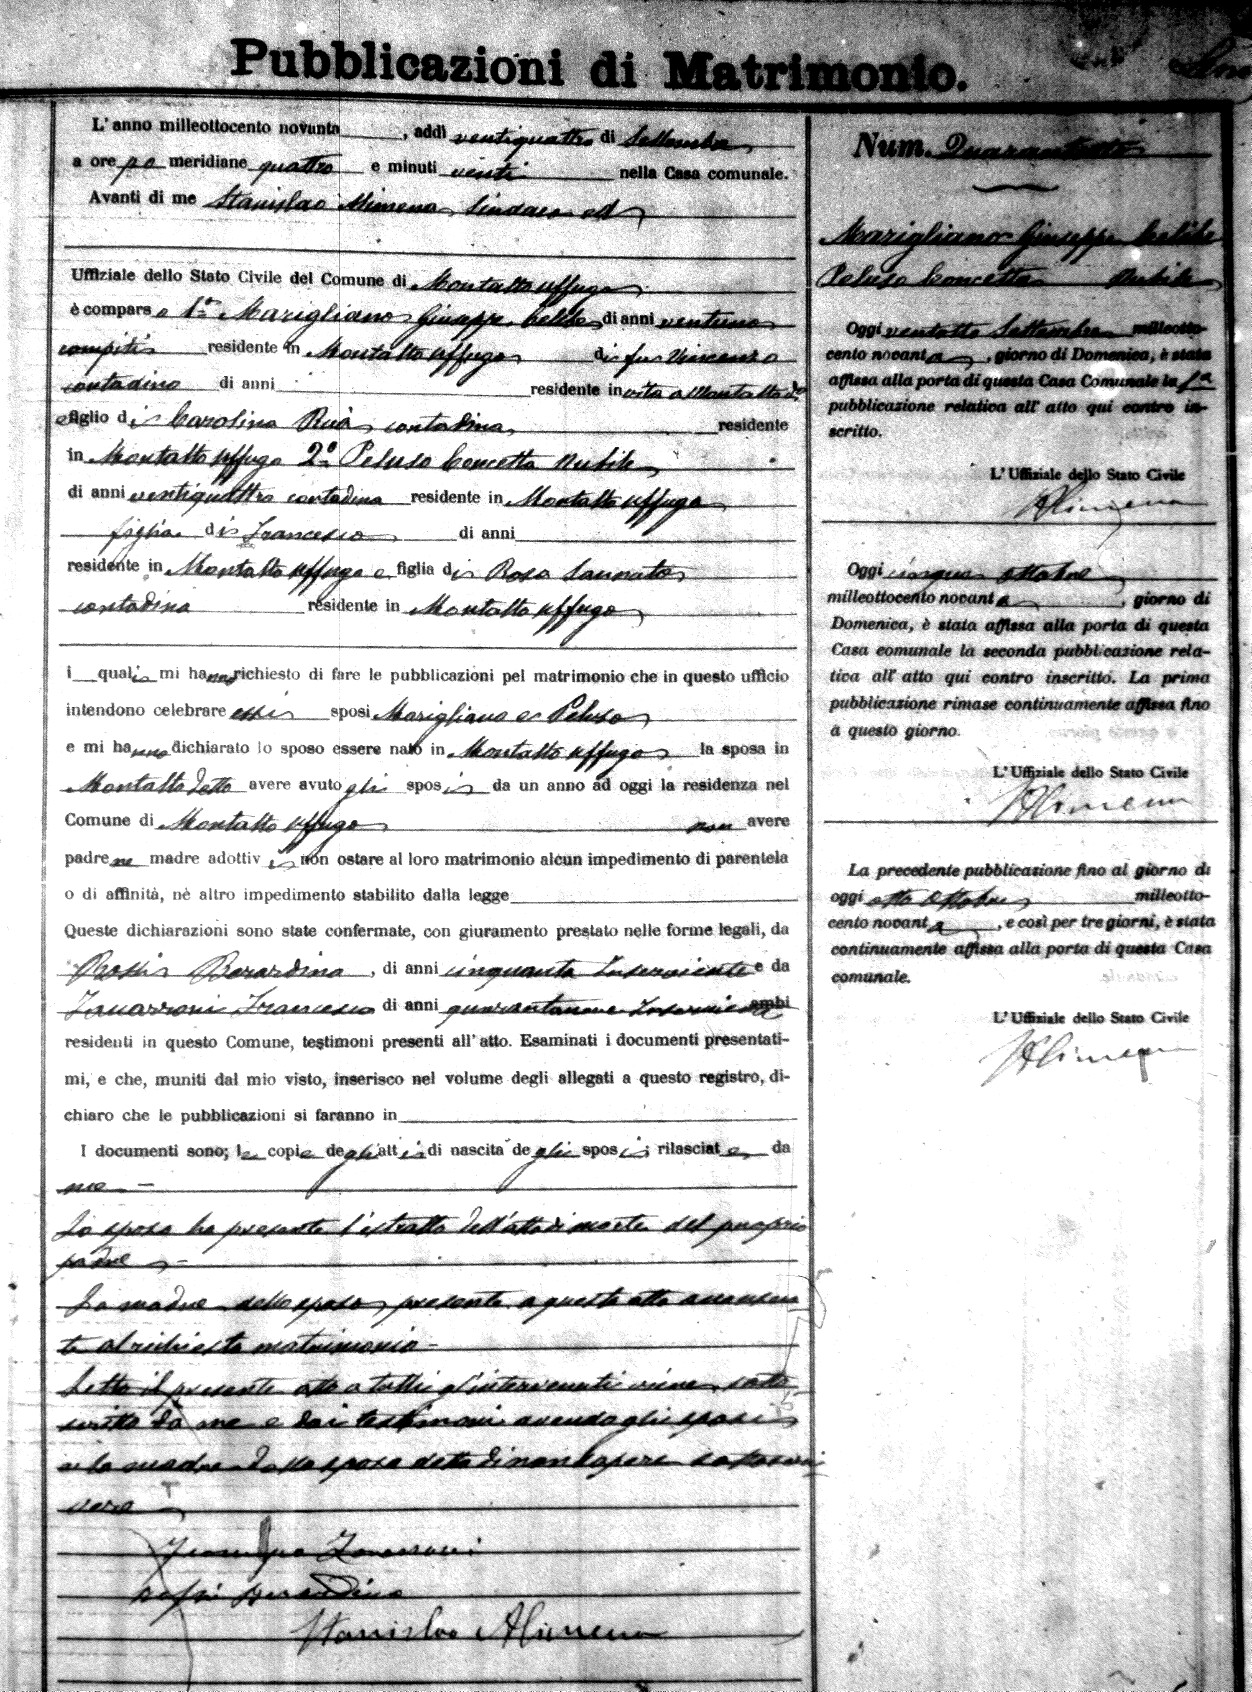 Pubblicazioni di Matrimonio.
L'anno milleottocento novanta, addì ventiquattro di Settembre
a ore po meridiane quattro e minuti venti nella Casa comunale.
Avanti di me Stanislao Alimena Sindaco ed
Uffiziale dello Stato Civile del Comune di Montalto Uffugo
è comparso 1º Marigliano Giuseppe celibe di anni ventuno
compiti residente in Montalto Uffugo di fu Vincenzo
contadino di anni residente in vita a Montalto do
e figlio di Carolina Ruà contadina residente
in Montalto Uffugo 2º Peluso Concetta nubile
di anni ventiquattro contadina residente in Montalto Uffugo
figlia di Francesco di anni
residente in Montalto Uffugo e figlia di Rosa
contadina residente in Montalto Uffugo
i quali mi hanno richiesto di fare le pubblicazioni pel matrimonio che in questo ufficio
intendono celebrare essi sposi Marigliano e Peluso
e mi hanno dichiarato lo sposo essere nato in Montalto Uffugo la sposa in
Montalto detto avere avuto gli sposi da un anno ad oggi la residenza nel
Comune di Montalto Uffugo non avere
padre ne madre adottivi non ostare al loro matrimonio alcun impedimento di parentela
o di affinità, nè altro impedimento stabilito dalla legge
Queste dichiarazioni sono state confermate, con giuramento prestato nelle forme legali, da
Rossi Berardino, di anni cinquanta Inserviente e da
Zavarroni Francesco di anni quarantanove Inserviente ambi
residenti in questo Comune, testimoni presenti all'atto. Esaminati i documenti presentati-
mi, e che, muniti dal mio visto, inserisco nel volume degli allegati a questo registro, di-
chiaro che le pubblicazioni si faranno in
I documenti sono; le copie degli atti di nascita degli sposi; rilasciate da
me
Lo sposo ha presente l'estratto dell'atto di morte del proprio
padre
La madre dello sposo, presente a questo atto acconsen
te al richiesto matrimonio
Letto il presente atto a tutti gl'intervenuti viene sotto
scritto da me e dai testimoni avendo gli sposi
e la madre dello sposo detto di non sapere sottoscri
vere
Zavarroni
Rossi Berardino
Stanislao Alimena
Num. Quarantotto
Marigliano Giuseppe Celibe
Peluso Concetta Nubile
Oggi ventotto Settembre milleotto-
cento novanta, giorno di Domenica, è stata
affissa alla porta di questa Casa Comunale la 1a
pubblicazione relativa all' atto qui contro in-
scritto.
L'Uffiziale dello Stato Civile
SAlimena
Oggi cinque ottobre
milleottocento novanta, giorno di
Domenica, è stata affissa alla porta di questa
Casa comunale la seconda pubblicazione rela-
tiva all' atto qui contro inscritto. La prima
pubblicazione rimase continuamente affissa fino
a questo giorno.
L'Uffiziale dello Stato Civile
SAlimena
La precedente pubblicazione fino al giorno di
oggi otto ottobre milleotto-
cento novanta, e così per tre giorni, è stata
continuamente affissa alla porta di questa Casa
comunale.
L'Uffiziale dello Stato Civile
SAlimena